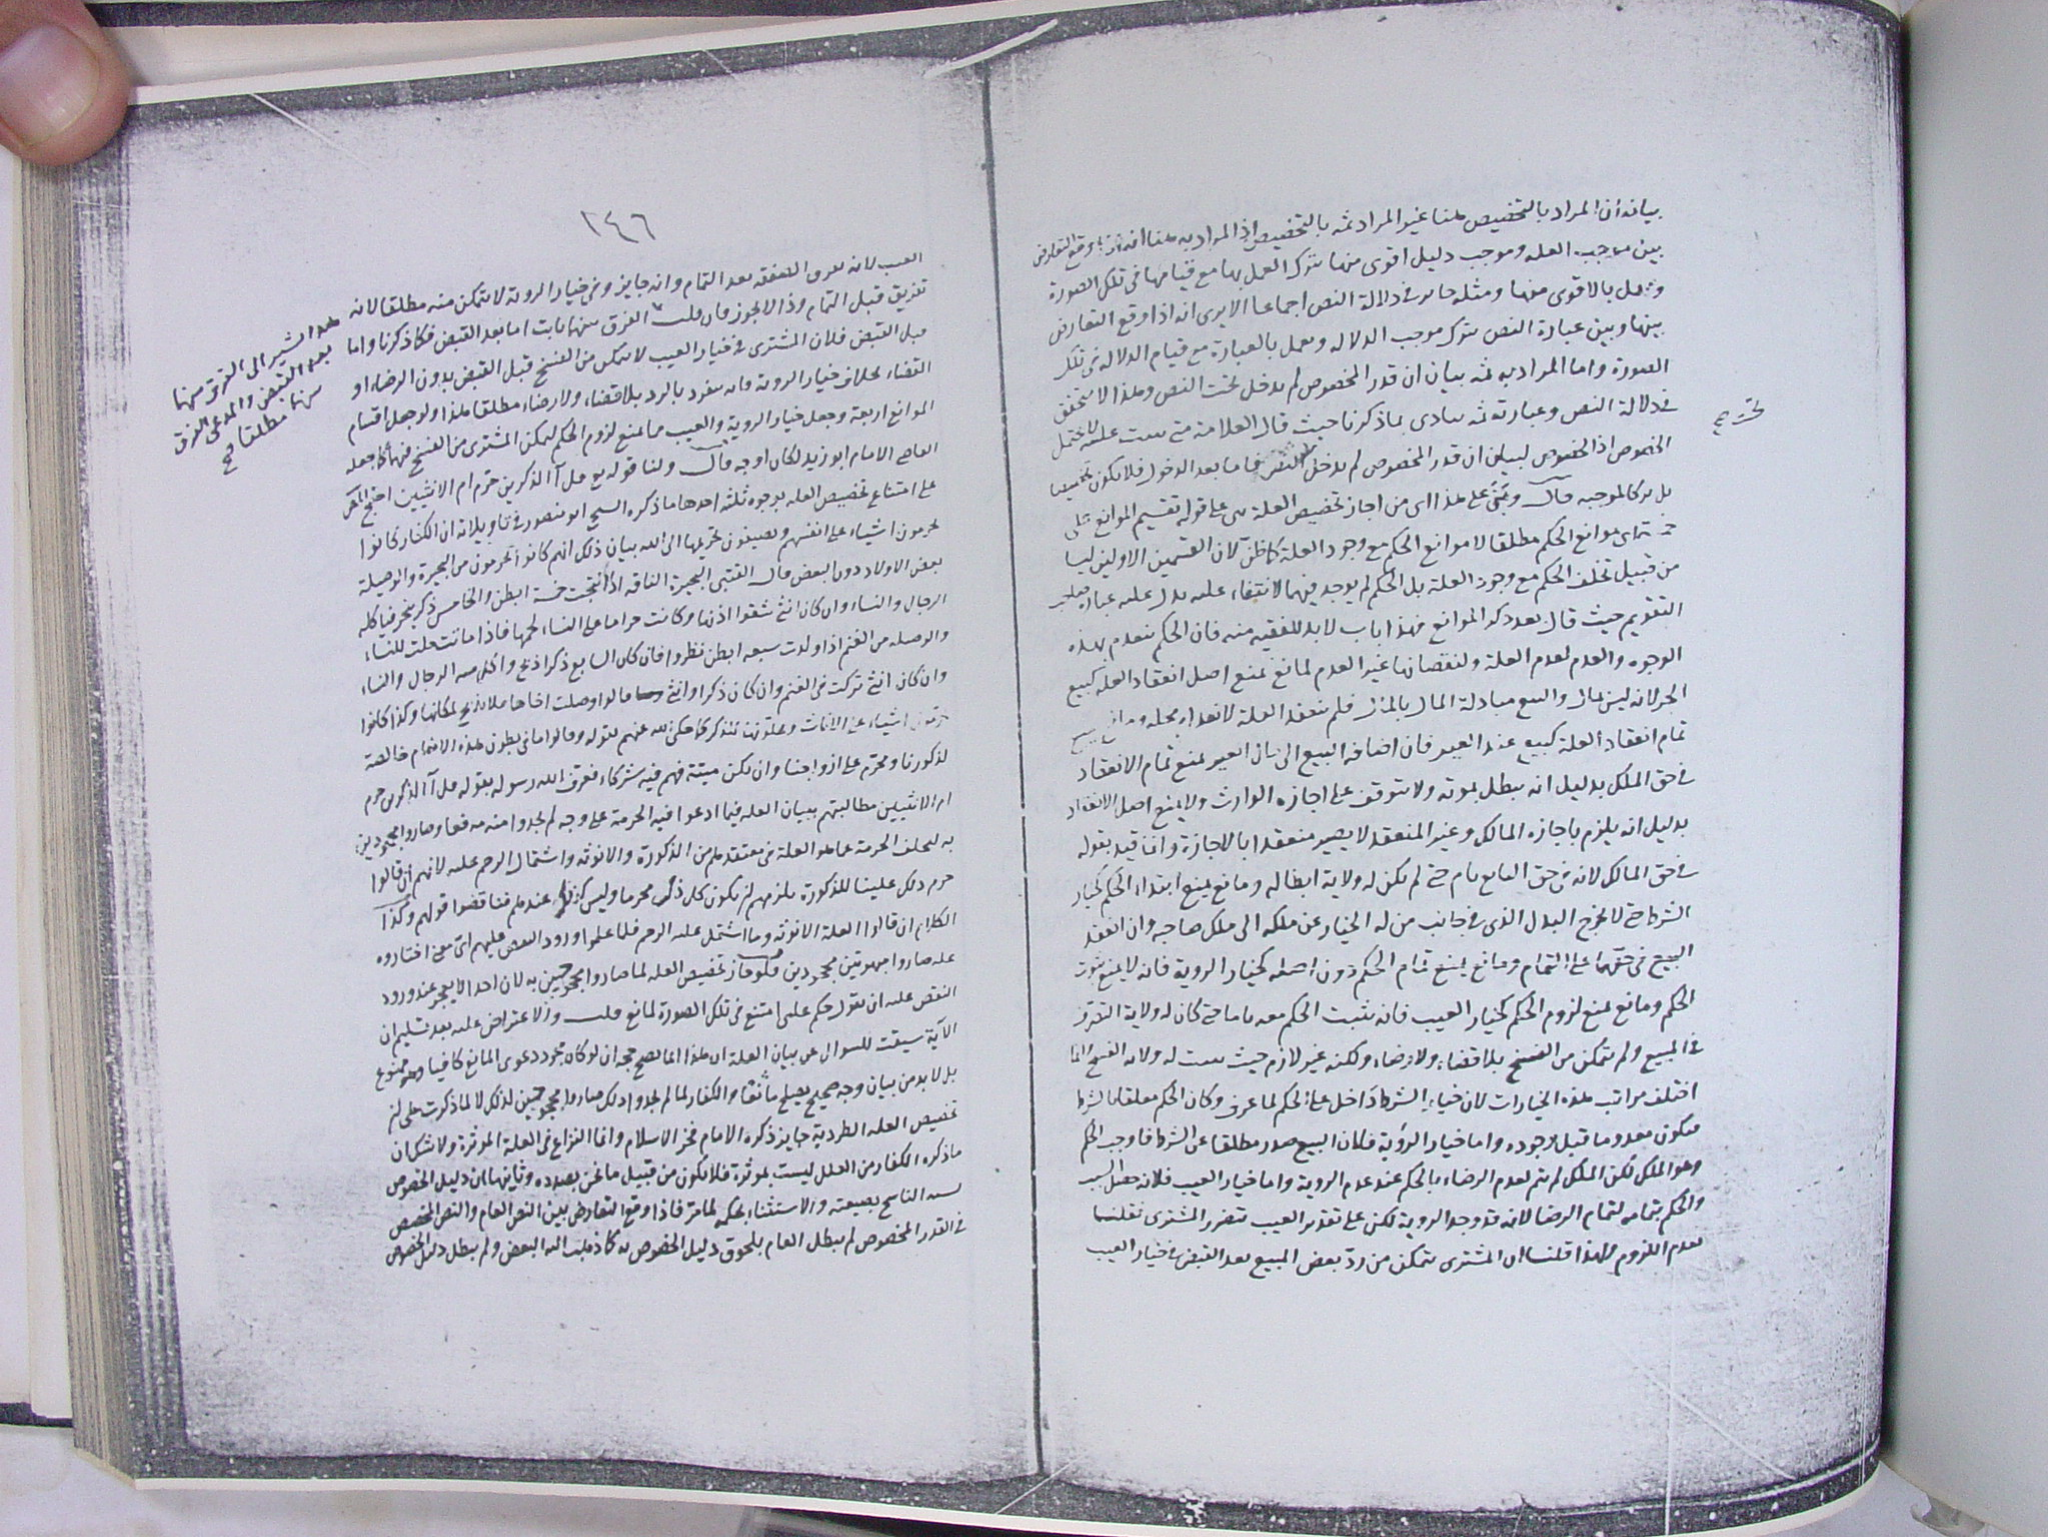 بيانه ان المراد بالتخصيص هنا غير المراد ثمه بالتخصيص اذ المراد به هنا انه اذا وقع التعارض
بين موجب العله وموجب دليل اقوى منها يترك العمل بها مع قيامها فى تلك الصورة
ويعمل بالاقوى منها ومثله جايز فى دلالة النص اجماعا الا يرى انه اذا وقع التعارض
بينها وبين عبارة النص يترك موجب الدلاله ويعمل بالعبارة مع قيام الدلاله فى تلك
الصورة واما المراد به ثمه بيان ان قدر المخصوص لم يدخل تحت النص وهذا لا يتحقق
فى دلالة النص وعبارته ثمه ينادى بما ذكرنا حيث قال العلامة متى ثبت عليته لا يحتمل
الخصوص اذ الخصوص لبيان ان قدر المخصوص لم يدخل تحت النص فاما بعد الدخول فلا يكون تخصيصا
بل تركا لموجبه قال ويبتنى على هذا اى من اجاز تخصيص العلة بنى على قوله تقسيم الموانع على
خمسة اى موانع الحكم مطلقا لا موانع الحكم مع وجود العلة كما ظن لان القسمين الاولين ليسا
من قبيل تخلف الحكم مع وجود العلة بل الحكم لم يوجد فيهما لانتفاء علته يدل عليه عبارة صاحب
التقويم حيث قال بعد ذكر الموانع فهذا باب لا بد للفقيه منه فان الحكم ينعدم بهذه
الوجوه والعدم لعدم العلة ولنقصانها غير العدم لمانع يمنع اصل انعقاد العله كبيع
الحر لانه ليس بمال والبيع مبادلة المال بالمال فلم ينعقد العلة لانعدام محله ومانع يمنع
تمام انعقاد العلة كبيع عبد الغير فان اضافه البيع الى مال الغير يمنع تمام الانعقاد
فى حق المالك بدليل انه يبطل بموته ولا يتوقف على اجازه الوارث ولا يمنع اصل الانعقاد
بدليل انه يلزم باجازه المالك وغير المنعقد لا يصير منعقدا بالاجازة وانما قيد بقوله
فى حق المالك لانه فى حق البايع تام حتى لم يكن له ولاية ابطاله ومانع يمنع ابتداء الحكم كخيار
الشرط حتى لا يخرج البدل الذى فى جانب من له الخيار عن ملكه الى ملك صاحبه وان انعقد
البيع فى حقهما على التمام ومانع يمنع تمام الحكم دون اصله كخيار الروية فانه لا يمنع ثبوت
الحكم ومانع يمنع لزوم الحكم كخيار العيب فانه يثبت الحكم معه تاما حتى كان له ولاية التصرف
فى المبيع ولم يتمكن من الفسخ بلا قضاء ولا رضاء ولكنه غير لازم حيث يثبت له ولاية الفسخ انما
اختلف مراتب هذه الخيارات لان خيار الشرط داخل على الحكم لما عرف وكان الحكم معلقا بالشرط
فيكون معدوما قبل وجوده واما خيار الرؤية فلان البيع صدر مطلقا عن الشرط فاوجب الحكم
وهو الملك لكن الملك لم يتم لعدم الرضاء بالحكم عند عدم الروية واما خيار العيب فلانه حصل السبب
والحكم بتمامه لتمام الرضا لانه قد وجد الروية لكن على تقدير العيب يتضرر المشترى فقلنا
بعدم اللزوم ولهذا قلنا ان المشترى يتمكن من رد بعض المبيع بعد القبض فى خيار العيب
تحته صح
١٤٦
العيب لانه تفريق الصفقه بعد التمام وانه جايز وفى خيار الروية لا يتمكن منه مطلقا لانه
تفريق قبل التمام وذا لا يجوز فان قلت الفرق بينهما ثابت اما بعد القبض فكما ذكرنا واما
قبل القبض فلان المشترى فى خيار العيب لا يتمكن من الفسخ قبل القبض بدون الرضاء او
القضاء بخلاف خيار الروية فانه ينفرد بالرد بلا قضاء ولا رضاء مطلقا هذا ولو جعل اقسام
الموانع اربعة وجعل خيار الروية والعيب مما يمنع لزوم الحكم ليمكن المشترى من الفسخ فيهما كما جعله
القاضى الامام ابو زيد لكان اوجه قال ولنا قوله تع قل آ الذكرين حرم ام الانثيين احتج المنكر
على امتناع تخصيص العله بوجوه ثلثه احدها ما ذكره الشيخ ابو منصور فى تاويلاته ان الكفار كانوا
يحرمون اشياء على انفسهم ويضيفون تحريمها الى الله بيان ذلك انهم كانوا يحرمون من البحيرة والوصيلة
بعض الاولاد دون البعض قال القتبى البحيرة الناقه اذا نتجت خمسة ابطن والخامس ذكر نحر فياكله
الرجال والنساء وان كان انثى شقوا اذنها وكانت حراما على النساء لحمها فاذا ماتت حلت للنساء
والوصيله من الغنم اذا ولدت سبعه ابطن نظروا فان كان السابع ذكرا ذبح واكل منه الرجال والنساء
وان كان انثى تركت فى الغنم وان كان ذكرا وانثى قالوا وصلت اخاها فلا يذبح لمكانها وكذا كانوا
يحرمون اشياء على الاناث ويحلونها للذكر كما حكى الله عنهم بقوله وقالوا ما فى بطون هذه الانعام خالصة
لذكورنا ومحرم على ازواجنا وان يكن ميتة فهم فيه شركاء فعرف الله رسوله بقوله قل آ الذكرين حرم
ام الانثيين مطالبتهم ببيان العله فيما ادعوا فيه الحرمة على وجه لم يجدوا منه مدفعا وصاروا محجوجين
به لتخلف الحرمة عما هو العلة فى معتقدهم من الذكورة والانوثه واشتمال الرحم عليه لانهم ان قالوا
حرم ذلك علينا للذكورة يلزمهم ان يكون كل ذكر محرما وليس كذلك عندهم فناقضوا قولهم وكذا
الكلام ان قالوا العلة الانوثه وما اشتمل عليه الرحم فلما علموا ورود النقض عليهم اى معنى اختاروه
عله صاروا مبهوتين محجوجين فلو جاز تخصيص العله لما صاروا محجوجين به لان احدا لا يعجز عند ورود
النقض عليه ان يقول حكم علتى امتنع فى تلك الصورة لمانع قلت والاعتراض عليه بعد تسليم ان
الآية سيقت للسوال عن بيان العلة ان هذا انما يصح حجه ان لو كان مجرد دعوى المانع كافيا وهو ممنوع
بل لا بد من بيان وجه صحيح يصلح مانعا والكفار لما لم يجدوا ذلك صاروا محجوجين لذلك لا لما ذكرت على ان
تخصيص العله الطردية جايز ذكره الامام فخر الاسلام وانما النزاع فى العلة الموثرة ولا شك ان
ما ذكره الكفار من العلل ليست بموثرة فلا يكون من قبيل ما نحن بصدده وثانيها ان دليل الخصوص
يشبه الناسخ بصيغته والاستثناء بحكمه لما مر فاذا وقع التعارض بين النص العام والنص المخصص
فى القدر المخصوص لم يبطل العام بلحوق دليل الخصوص به كما ذهب اليه البعض ولم يبطل دليل الخصوص
هذا يشير الى الفرق بينهما
بعد القبض والمدعى الفرق
بينهما مطلقا صح